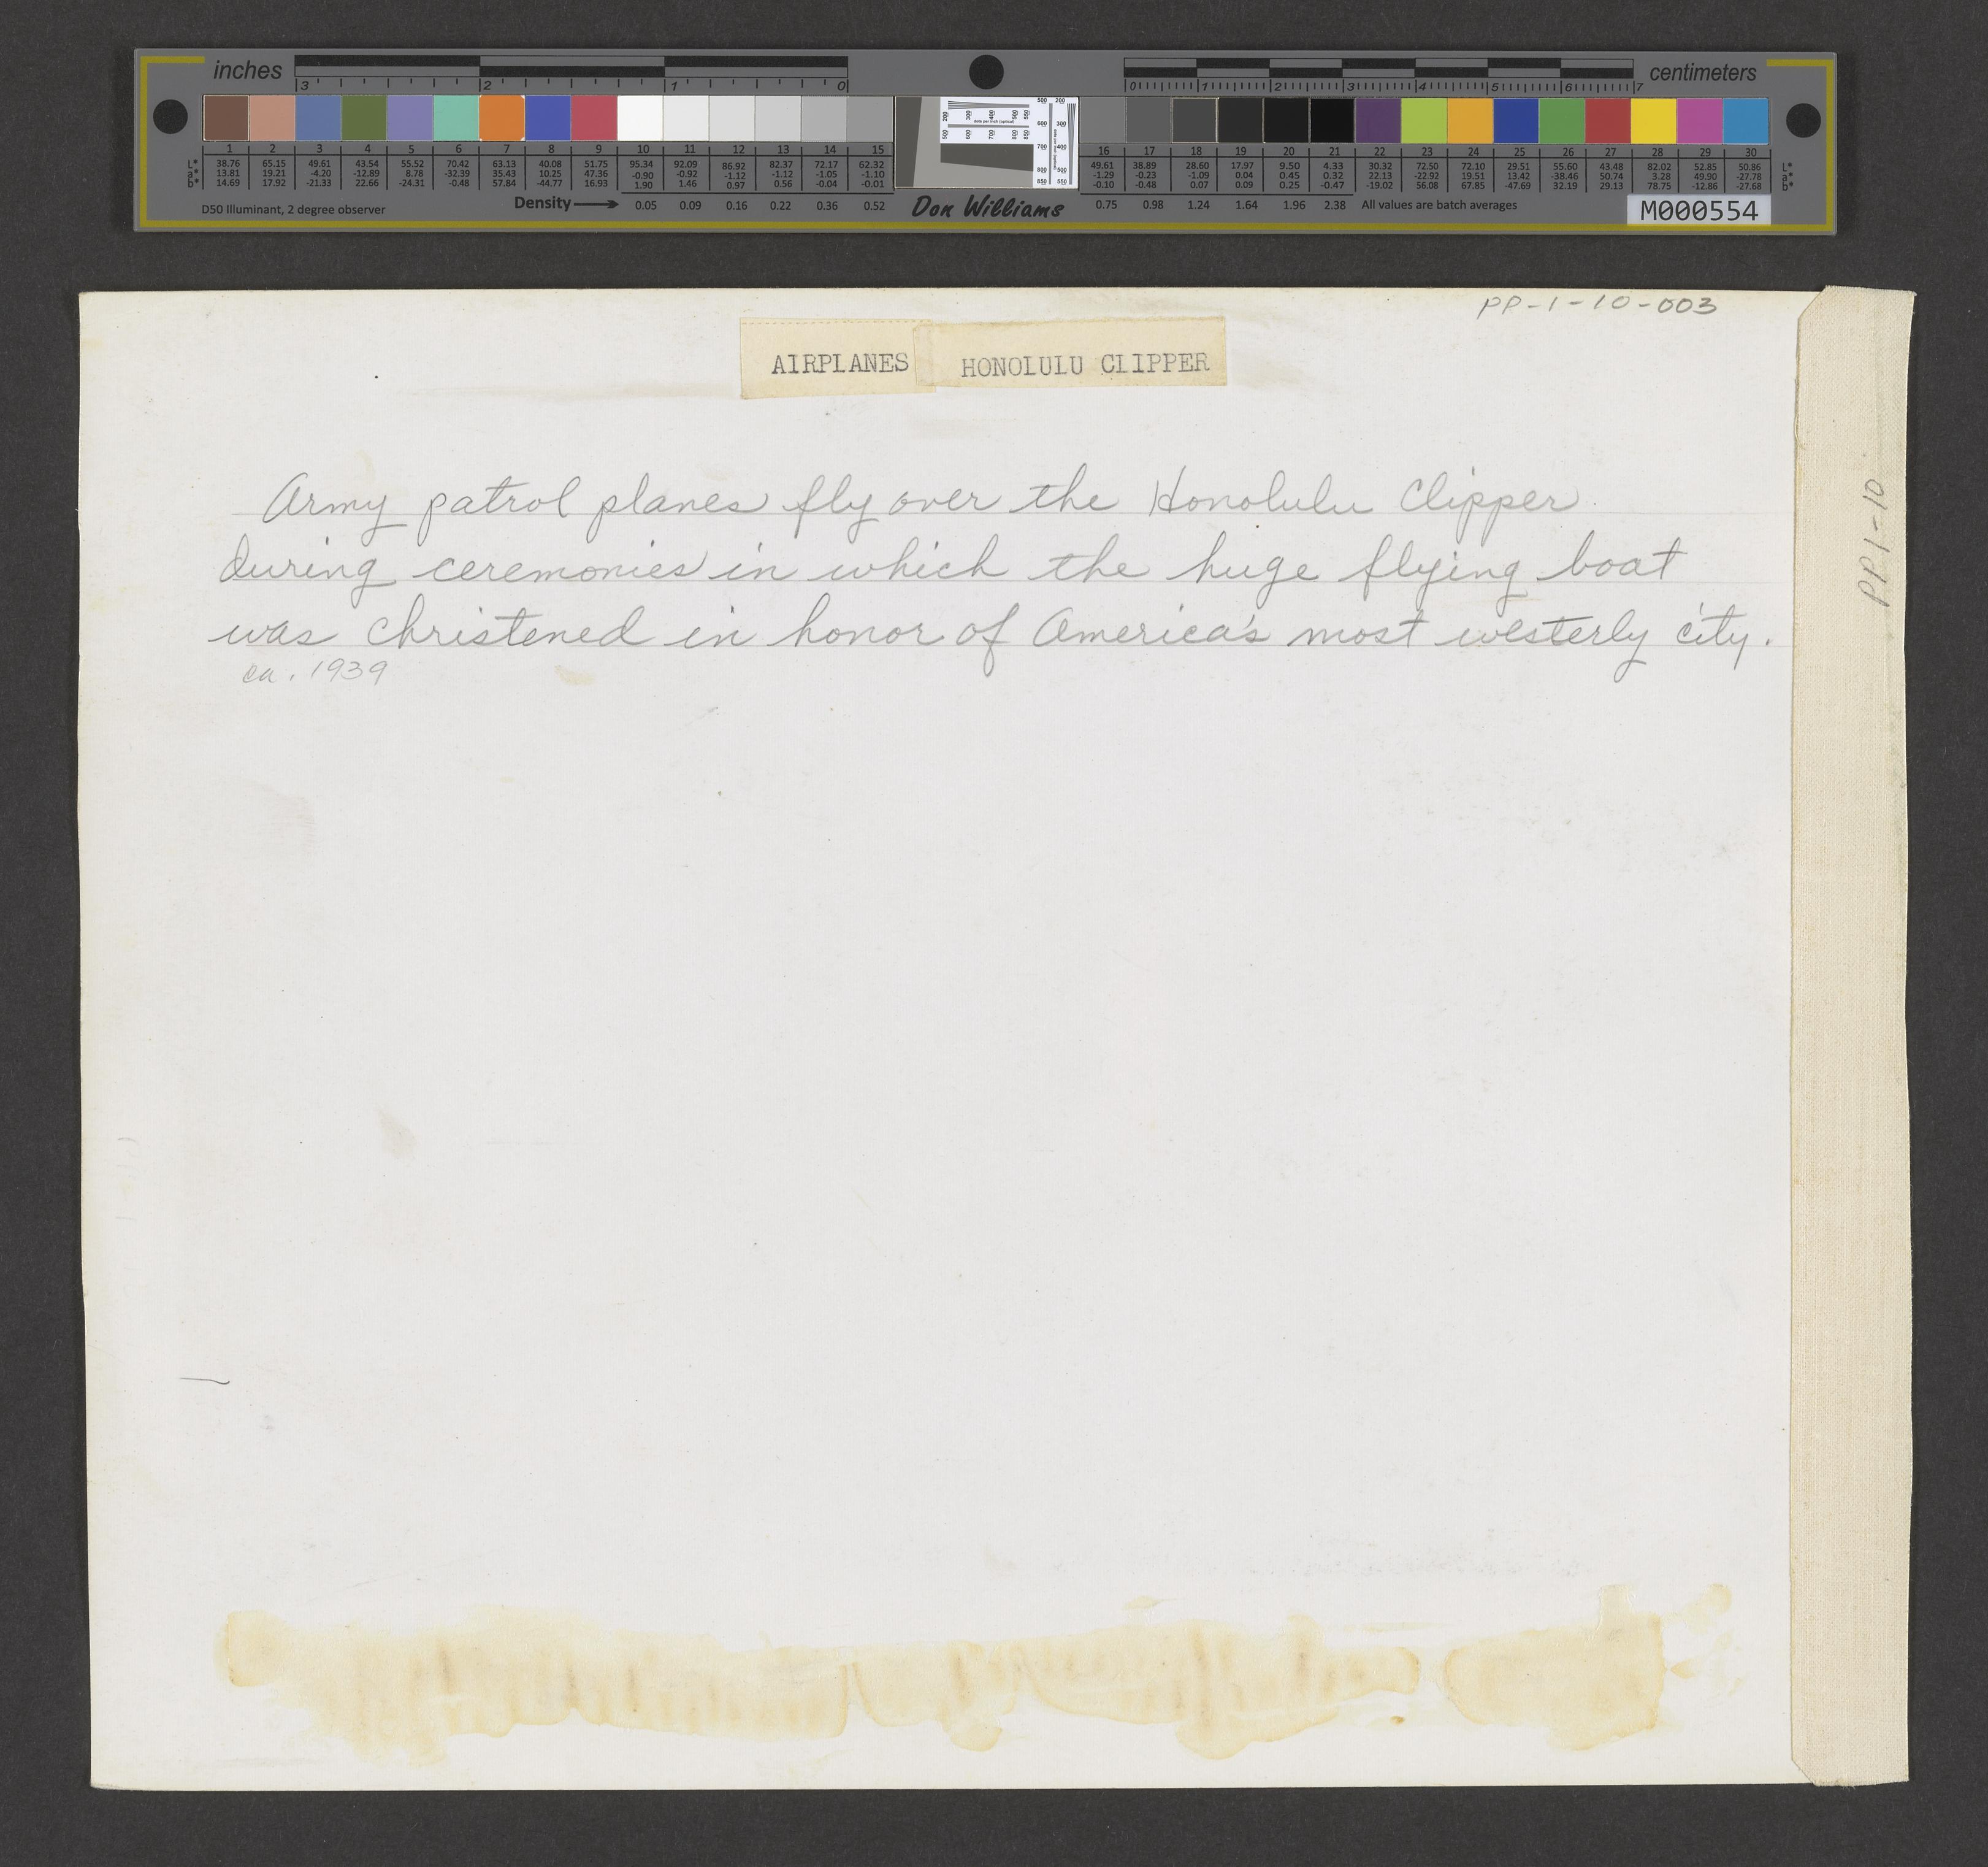 inches 3 2 1 0 0 1 2 3 4 5 6 7 centimeters
1 2 3 4 5 6 7 8 9 10 11 12 13 14 15 16 17 18 19 20 21 22 23 24 25 26 27 28 29 30
38.76 65.15 49.61 43.54 55.52 70.42 63.13 40.08 51.75 95.34 92.09 86.92 82.37 72.17 62.32 49.61 38.89 28.60 17.97 9.50 4.33 30.32 72.50 72.10 29.51 55.60 43.48 82.02 52.85 50.86
13.81 19.21 -4.20 -12.89 8.78 -32.39 35.43 10.25 47.36 -0.90 -0.92 -1.12 -1.12 -1.05 -1.10 -1.29 -0.23 -1.09 0.04 0.45 0.32 22.13 -22.92 19.51 13.42 -38.46 50.74 3.28 49.90 -27.78
14.69 17.92 -21.33 22.66 -24.31 -0.48 57.84 -44.77 16.93 1.90 1.46 0.97 0.56 -0.04 -0.01 -0.10 -0.48 0.07 0.09 0.25 -0.47 -19.02 56.08 67.85 -47.69 32.19 29.13 78.75 -12.86 -27.68
D50 Illuminant, 2 degree observer Density 0.05 0.09 0.16 0.22 0.36 0.52 Don Williams 0.75 0.98 1.24 1.64 1.96 2.38 All values are batch averages M000554
PP-1-10-003
AIRPLANES HONOLULU CLIPPER
Army patrol planes fly over the Honolulu Clipper
during ceremonies in which the huge flying boat
was christened in honor of America's most westerly city.
ca. 1939
PP1-10